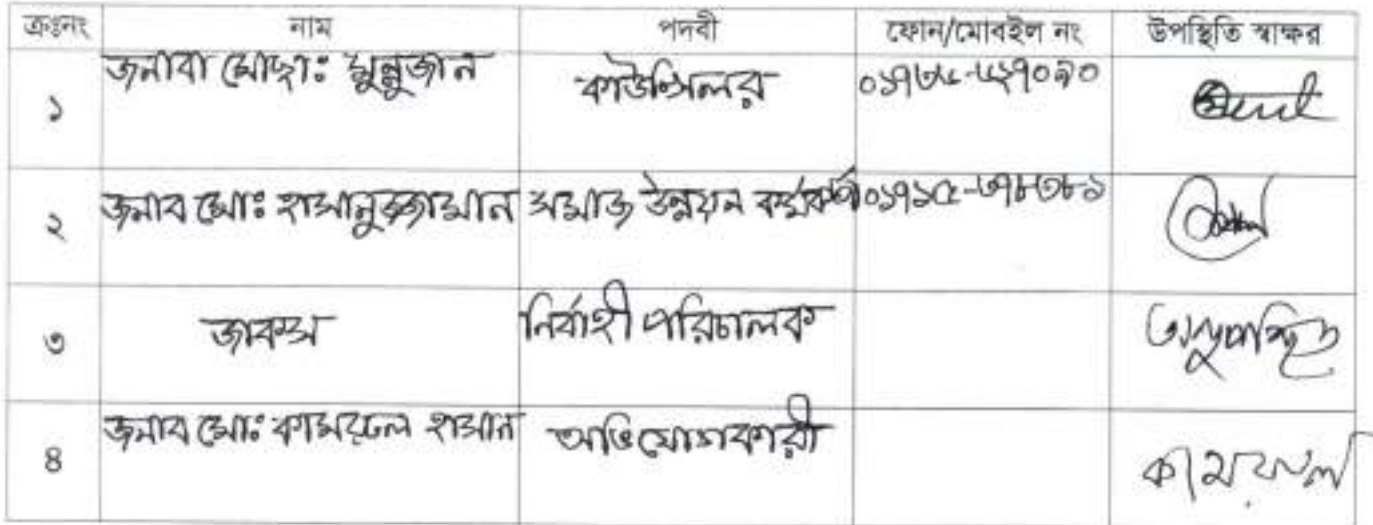 ক্রঃনং নাম পদবী ফোন/মোবইল নং উপস্থিতি স্বাক্ষর
১ জনাবা মোছাঃ মুন্নুজান কাউন্সিলর
২ জনাব মোঃ হাসানুজ্জামান সমাজ উন্নয়ন কর্মকর্তা ০১৭১৫-৩৭৮৩৮১
৩ জাকস নির্বাহী পরিচালক অনুপস্থিত
৪ জনাব মোঃ কামরুল হাসান অভিযোগকারী কামরুল